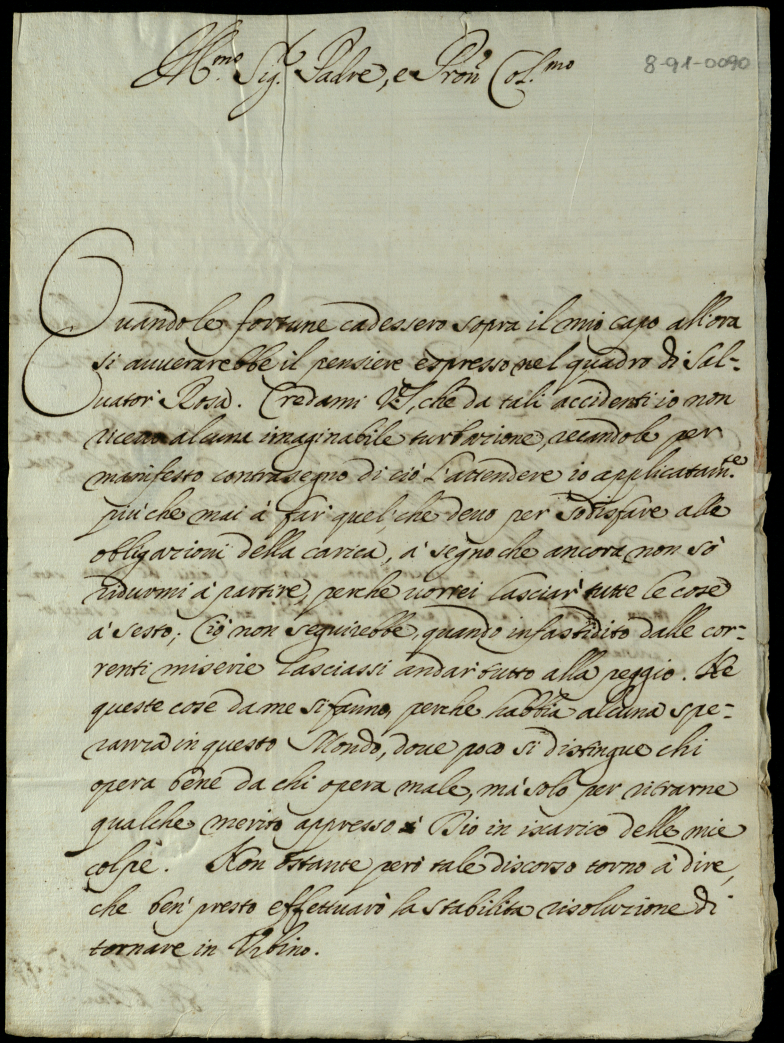 Ill.mo Sig.r Padre, e Pron Col.mo
8-91-0090
Quando le fortune cadessero sopra il mio capo all'ora
si auuerarebbe il pensiere espresso nel quadro di Sal-
uator Rosa. Credami VS, che da tali accidenti io non
riceuo alcuna imaginabile turbazione, recandole per
manifesto contrasegno di ciò l'attendere io applicatam.te
più che mai à far quel, che deuo per sodisfare alle
obligazioni della carica, a segno che ancora non sò
ridurmi à partire, perche uorrei lasciar tutte le cose
à sesto; Ciò non seguirebbe, quando infastidito dalle cor-
renti miserie lasciassi andar tutto alla peggio. Ne
queste cose da me si fanno, perche habbia alcuna spe-
ranza in questo Mondo, doue poco si distingue chi
opera bene da chi opera male, mà solo per ritrarne
qualche merito appresso Dio in iscarico delle mie
colpe. Non ostante però tale discorso torno à dire,
che ben presto effettuarò la stabilita risoluzione di
tornare in Vrbino.